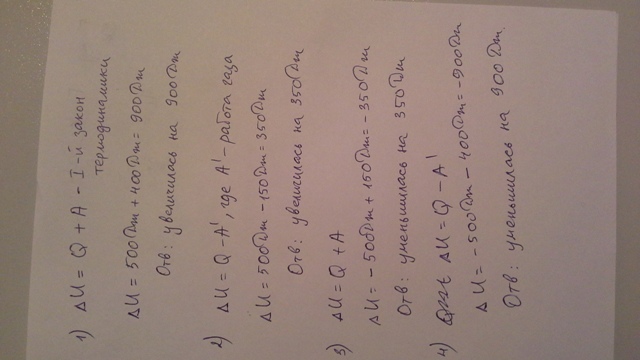 1) ΔU = Q + A - I-й закон
термодинамики
ΔU = 500Дж + 400Дж = 900Дж
Отв: увеличилась на 900Дж
2) ΔU = Q - A', где A' - работа газа
ΔU = 500Дж - 150Дж = 350Дж
Отв: увеличилась на 350Дж
3) ΔU = Q + A
ΔU = -500Дж + 150Дж = -350Дж
Отв: уменьшилась на 350Дж
4) ΔU = Q - A'
ΔU = -500Дж - 400Дж = -900Дж
Отв: уменьшилась на 900Дж